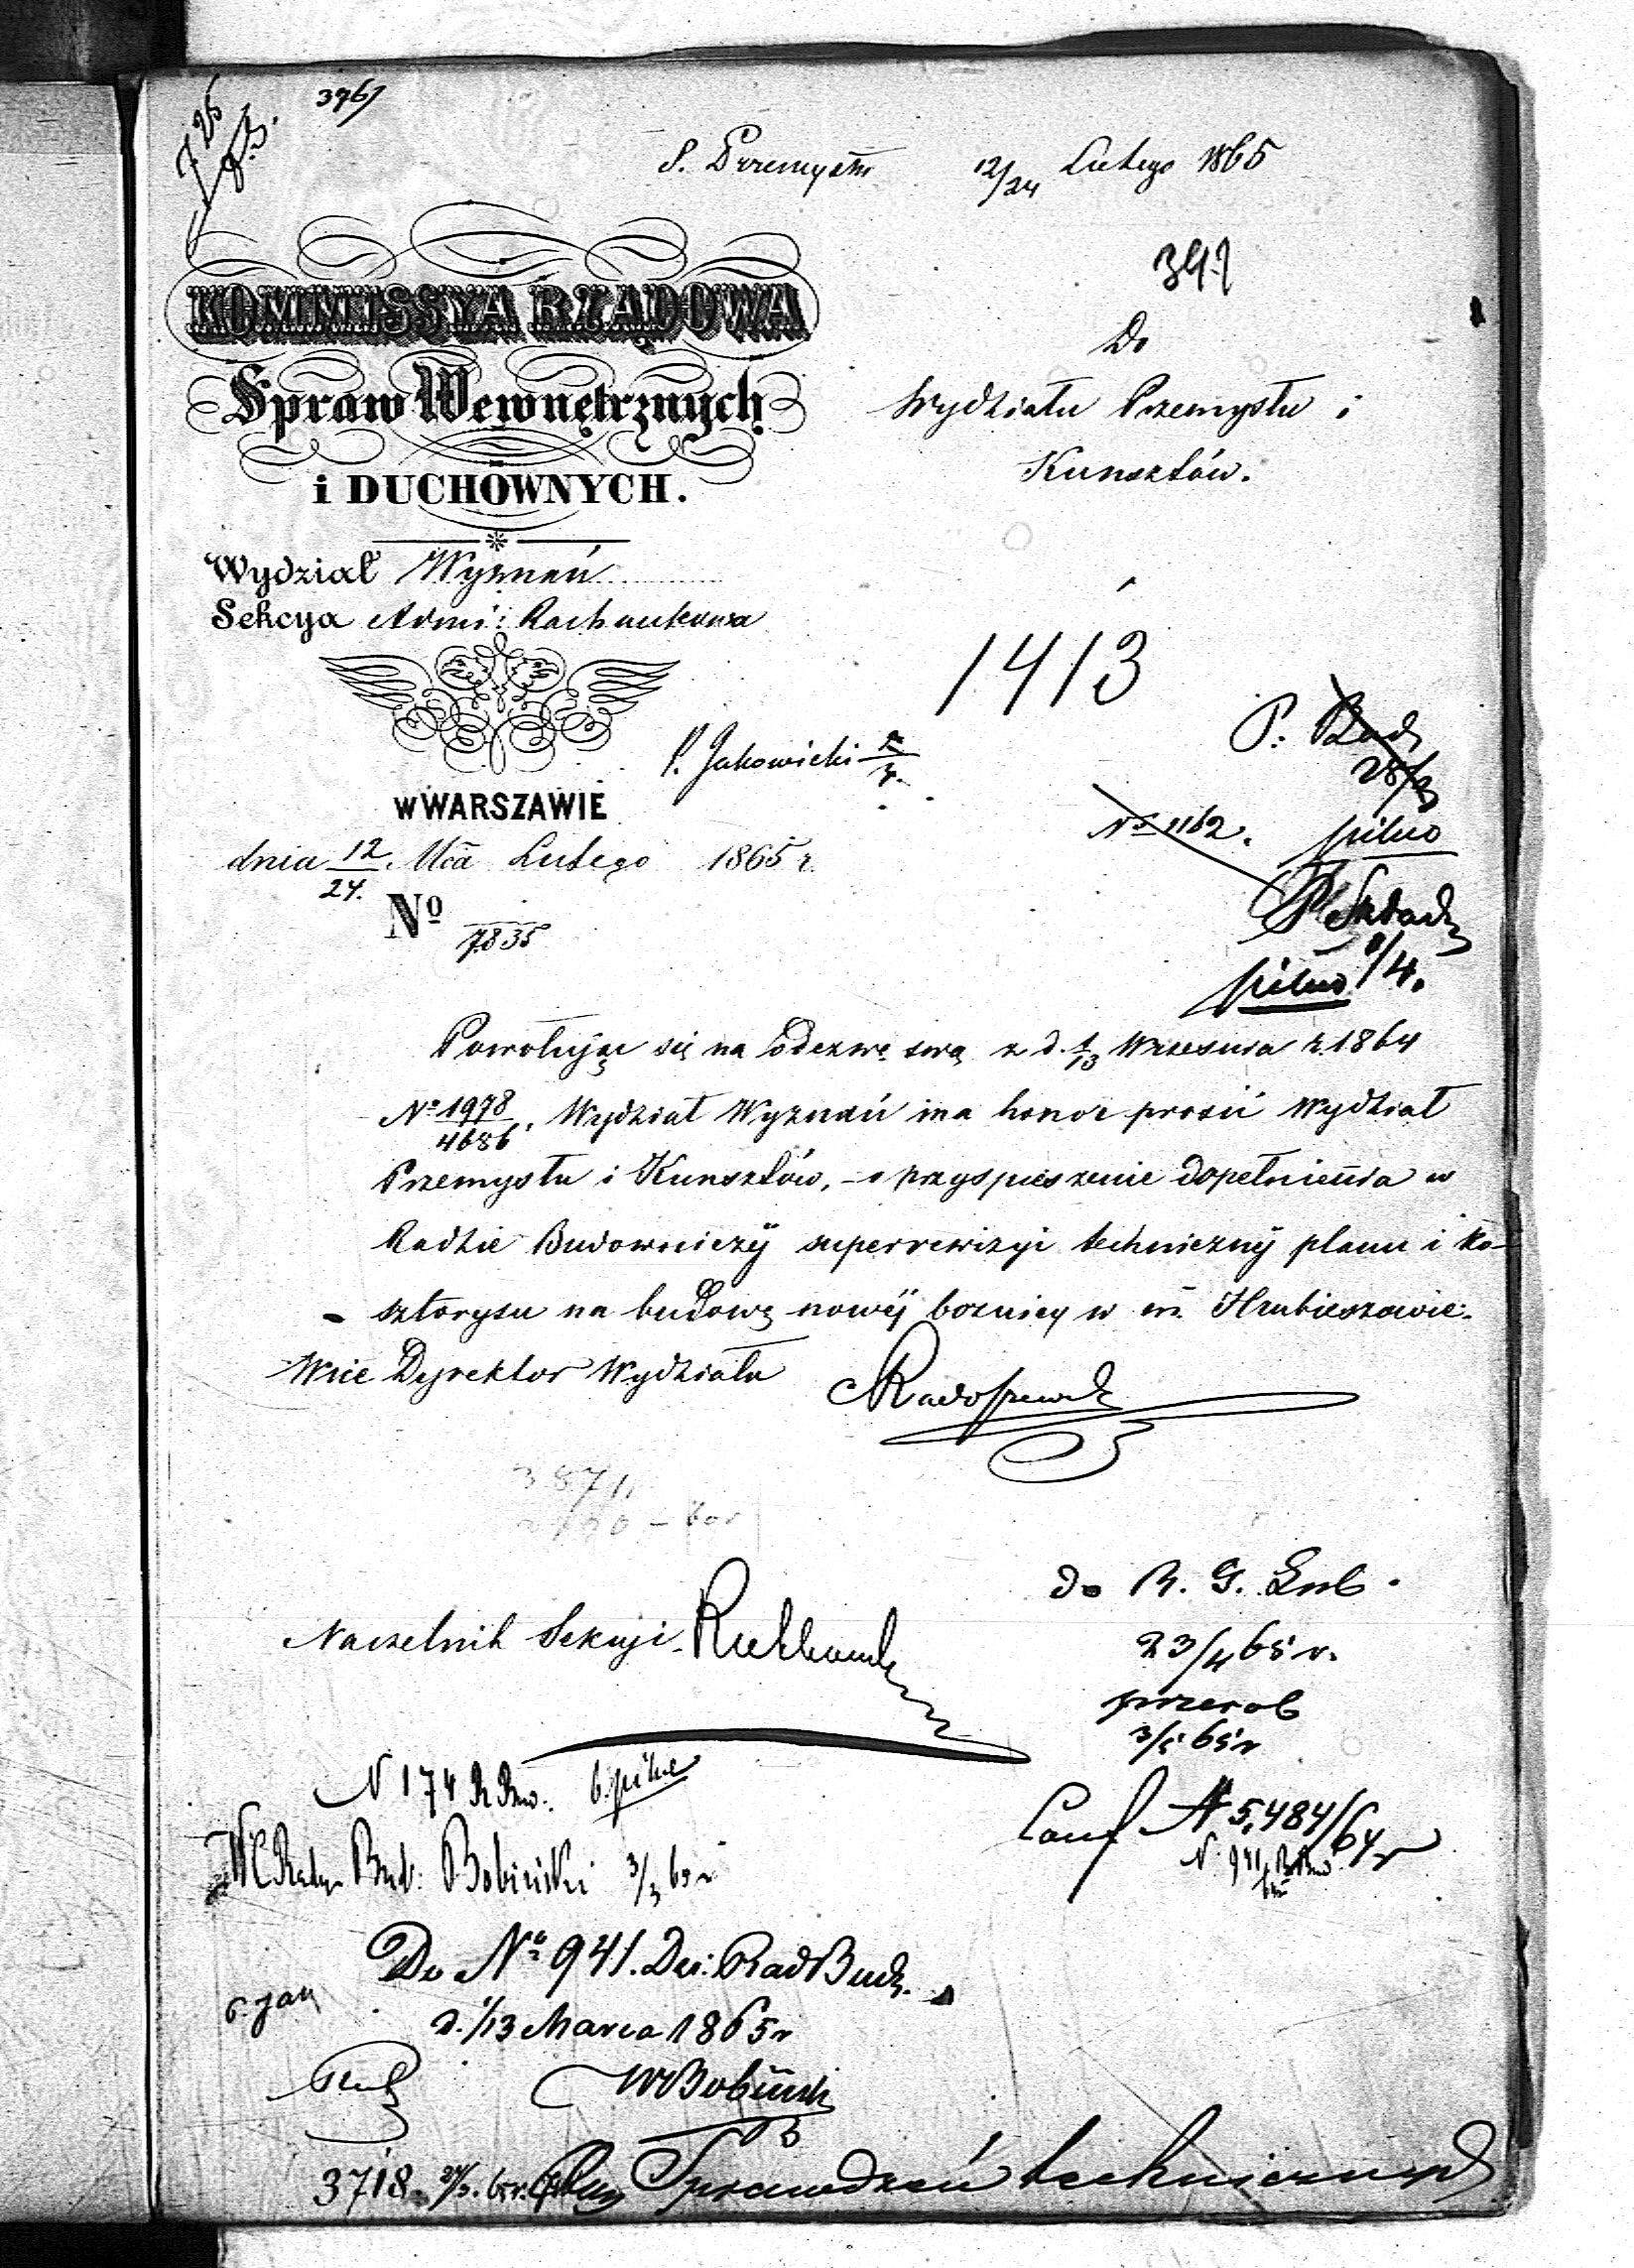 3961
S. Przemysłu 12/24 Lutego 1865
KOMMISSYA RZĄDOWA
Spraw Wewnętrznych
i DUCHOWNYCH.
Do
Wydziału Przemysłu i
Kunsztów.
Wydział Wyznań
Sekcya Admi: Rachunkowa
1413
P. Jakowicki
w WARSZAWIE
dnia 12/24. Mca Lutego 1865 r.
No 7835
P. Rad
No 1162. pilno
P Składz
pilno 8/4.
Powołując się na Odezwę swą z d. 1/13 Września r. 1864
No 1978/4686. Wydział Wyznań ma honor prosić Wydział
Przemysłu i Kunsztów, – o przyspieszenie dopełnienia w
Radzie Budowniczÿ superrewizyi technicznÿ planu i ko-
sztorysu na budowę nowéÿ bożnicy w m. Hrubieszowie.
Wice Dyrektor Wydziału
do R. G. Lub.
23/4 65 r.
przerob
3/5 65 r
Naczelnik Sekcyi
N 174 R Bud. b. pilne
Conf N 5,484/64 r
N. 941 R Bud
W Radzy Bud: Bobiński 3/3 65 r
Do No 941. Dei: Rad Budz.
d. 1/13 Marca 1865 r
W Bobiński
3718. 24/3. 65 r. Sprawdzeń technicznych